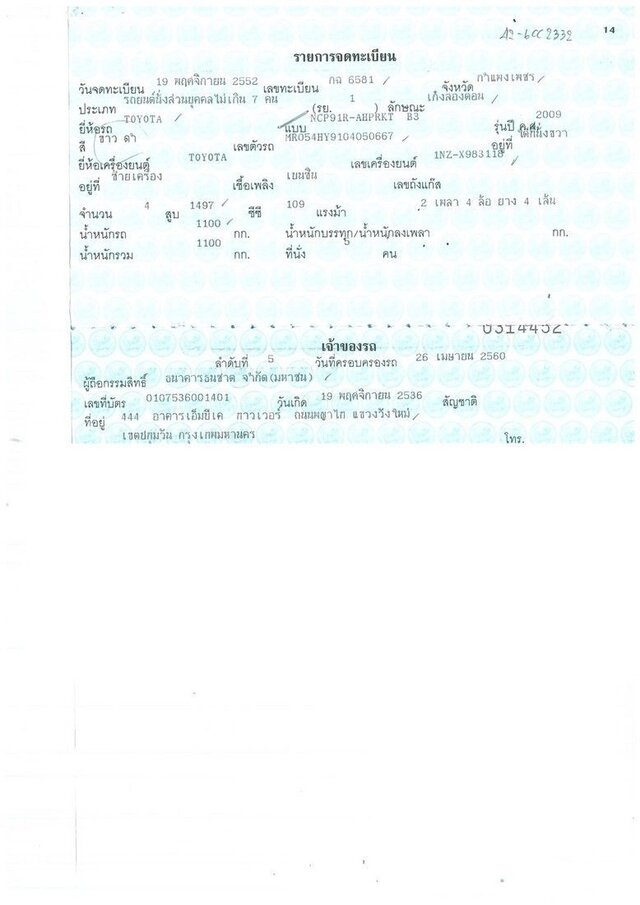 A2-6CC2332 14
รายการจดทะเบียน
วันจดทะเบียน 19 พฤศจิกายน 2552 เลขทะเบียน กฉ 6581 จังหวัด กำแพงเพชร
ประเภท รถยนต์นั่งส่วนบุคคลไม่เกิน 7 คน (รย. 1 ) ลักษณะ เก๋งสองตอน
ยี่ห้อรถ TOYOTA แบบ NCP91R-AHPRKT B3 รุ่นปี ค.ศ. 2009
สี ขาว ดำ เลขตัวรถ MR054HY9104050667 อยู่ที่ ใต้ที่นั่งขวา
ยี่ห้อเครื่องยนต์ TOYOTA เลขเครื่องยนต์ 1NZ-X983118
อยู่ที่ ซ้ายเครื่อง เชื้อเพลิง เบนซิน เลขถังแก๊ส
จำนวน 4 สูบ 1497 ซีซี 109 แรงม้า 2 เพลา 4 ล้อ ยาง 4 เส้น
น้ำหนักรถ 1100 กก. น้ำหนักบรรทุก/น้ำหนักลงเพลา กก.
น้ำหนักรวม 1100 กก. ที่นั่ง 5 คน
0314452
เจ้าของรถ
ลำดับที่ 5 วันที่ครอบครองรถ 26 เมษายน 2560
ผู้ถือกรรมสิทธิ์ ธนาคารธนชาต จำกัด(มหาชน)
เลขที่บัตร 0107536001401 วันเกิด 19 พฤศจิกายน 2536 สัญชาติ
ที่อยู่ 444 อาคารเอ็มบีเค ทาวเวอร์ ถนนพญาไท แขวงวังใหม่
เขตปทุมวัน กรุงเทพมหานคร โทร.